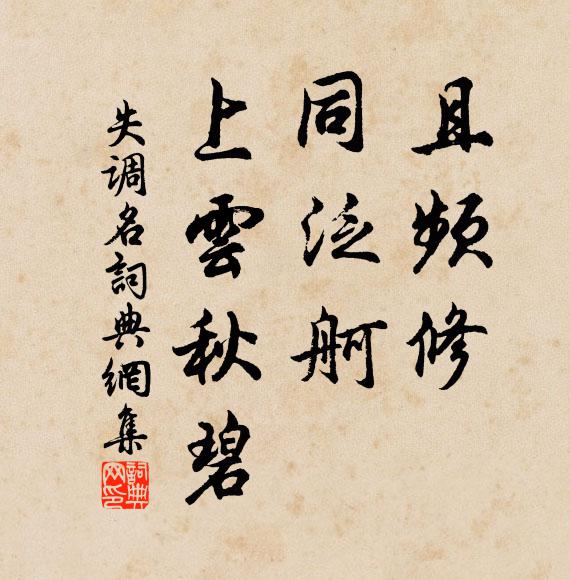 且頻修
同泛舸
上雲秋碧
失调名詞典網集
詞典网印